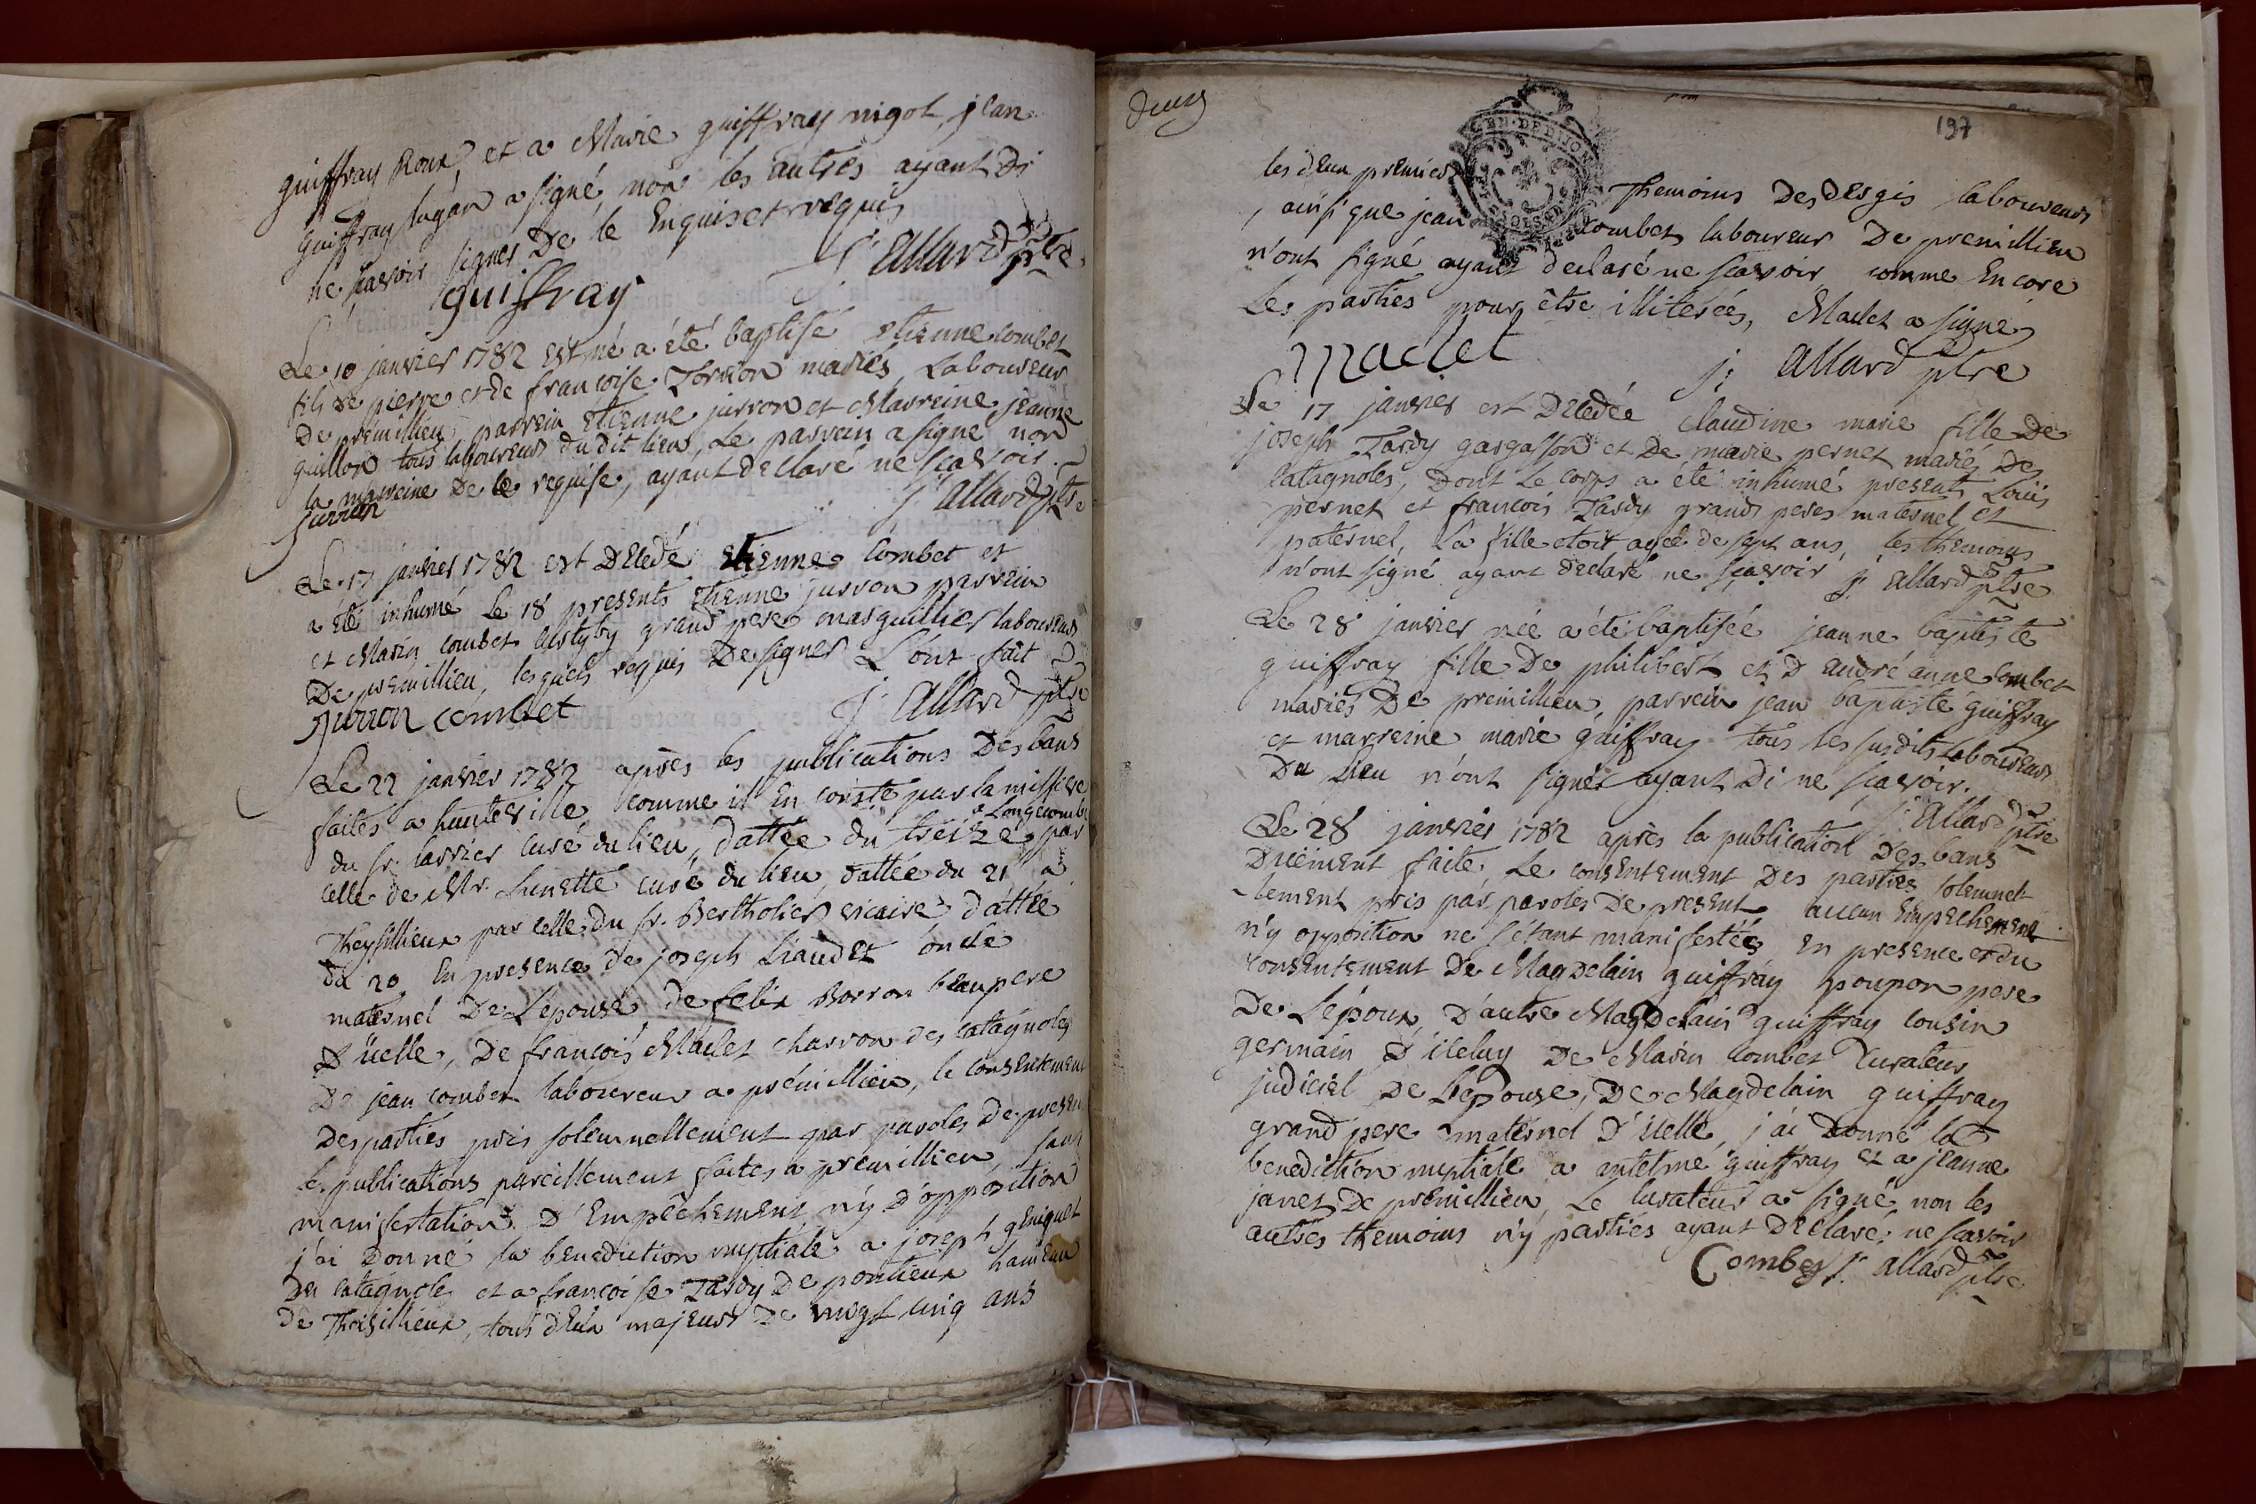 guiffray Roux, et a Marie guiffray nigot, jean
guiffray lugan a signé, non les autres ayant di
ne scavoir signer De le Enquis et requis
guiffray
J: allard ptre
Le 10 janvier 1782 est né a été baptisé etienne combet
fils de pierre et de françoise Torrion mariés, Laboureur
De prémillieu, parrein Etienne jurron et Marreine jeanne
guillon tous laboureurs du dit lieu, Le parrein a signé non
la marreine De le requise, ayant declaré ne scavoir.
jurron
J: allard ptre
Le 17 janvier 1782 est Decedé etienne Combet et
a été inhumé Le 18 presents Etienne jurron parrein
et Marin combet grand pere marguillier laboureurs
De premillieu, lesquels requis De signer L'ont fait
jurron combet
J: allard ptre
Le 22 janvier 1782 après les publications Des bans
faites a hauteville comme il En conste par la missive
du sr. Carrier curé du lieu, dattée du treize, a Longecombe par
celle de Mr. Lunette curé du lieu, dattée du 21 a
Theysillieux par celle du sr. Bertholier vicaire dattée
du 20 En presence de joseph Liaudet oncle
maternel De L'epouse, de felix Borron beaupere
D'icelle, De françois Maclet charron des catagnoles
De jean combet laboureur a prémillieu, le consentement
Des parties pris solemnellement par paroles de present
les publications pareillement faites a prémillieu, sans
manifestation D'Empêchement, n'y D'opposition
j'ai Donné la benediction nuptiale a joseph geniquet
Des catagnoles et a françoise Tardy De pontieux hameau
de Thesillieux, tous deux majeurs De vingt cinq ans
Deux
197
les deux premiers Themoins Desdesgis laboureurs
, ainsi que jean combet, laboureur De premillieu
n'ont signé ayant declaré ne scavoir, comme Encore
Les parties pour être illiterées, Maclet a signé
Maclet
J: allard ptre
Le 17 janvier est Decedée Claudine marie fille De
joseph Tardy gargasson et De marie pernet mariés Des
Catagnoles, Dont Le corps a été inhumé presents Loüis
pernet et francois Tardy grands peres maternel et
paternel, La fille etoit agée de sept ans, les themoins
n'ont signé ayant declaré ne scavoir J: allard ptre
Le 28 janvier née a été baptisée jeanne baptiste
guiffray fille De philibert et D'andré anne Combet
mariés De premillieu, parrein jean baptiste guiffray
et marreine marie guiffray tous les susdits Laboureurs
Du Lieu n'ont signé ayant Di ne scavoir.
J: allard ptre
Le 28 janvier 1782 après la publication Des bans
Duëment faite, Le consentement Des parties solemnel-
-lement pris par paroles De present, aucun Empechement
n'y opposition ne s'étant manifestée, En presence et du
consentement De Magdelain guiffray poupon pere
De L'époux, D'autre Magdelain guiffray cousin
germain D'iceluy De Marin Combet Curateur
judiciel De L'epouse, De Magdelain guiffray
grand pere maternel D'icelle, j'ai Donné la
benediction nuptiale a antelme guiffray et a jeanne
janet De premillieu, Le Curateur a signé, non les
autres themoins n'y parties ayant Declaré ne scavoir
Combet J: allard ptre